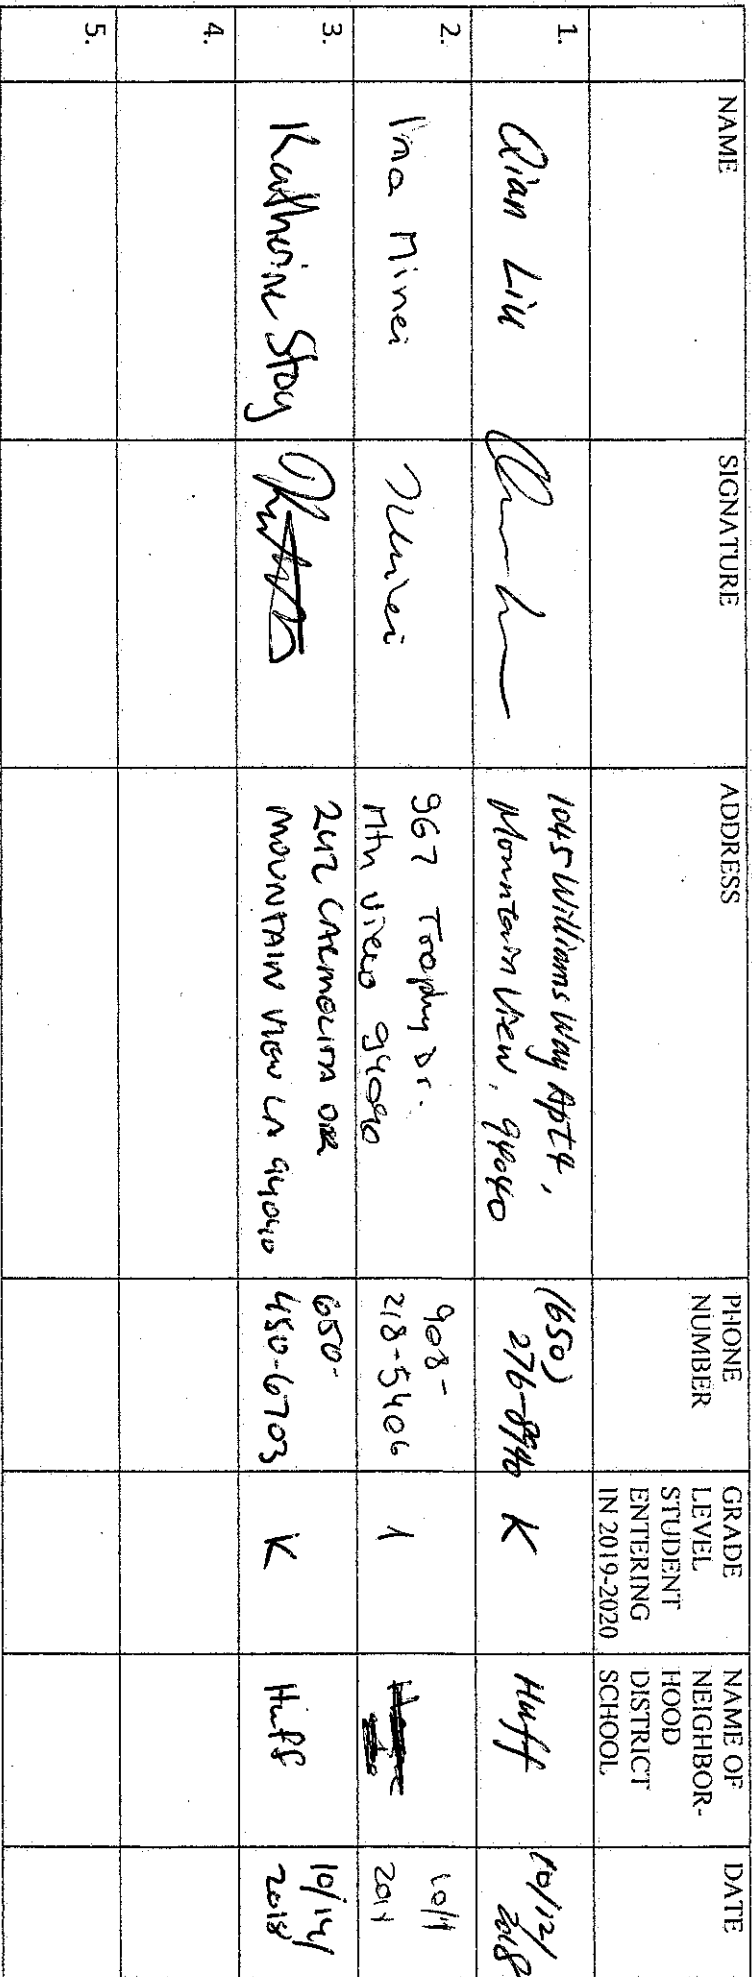 NAME
SIGNATURE
ADDRESS
PHONE
NUMBER
GRADE
LEVEL
STUDENT
ENTERING
IN 2019-2020
NAME OF
NEIGHBOR-
HOOD
DISTRICT
SCHOOL
DATE
1.
Qian Liu
1045 Williams Way Apt 4,
Mountain View, 94040
(650)
276-8940
K
Huff
10/12/
2018
2.
Ina Minei
967 Trophy Dr.
Mtn View 94040
908-
218-5406
1
10/1
201
3.
Katherine Stoy
242 CARMELITA
MOUNTAIN VIEW CA 94040
650-
450-6703
K
Huff
10/14/
2018
4.
5.